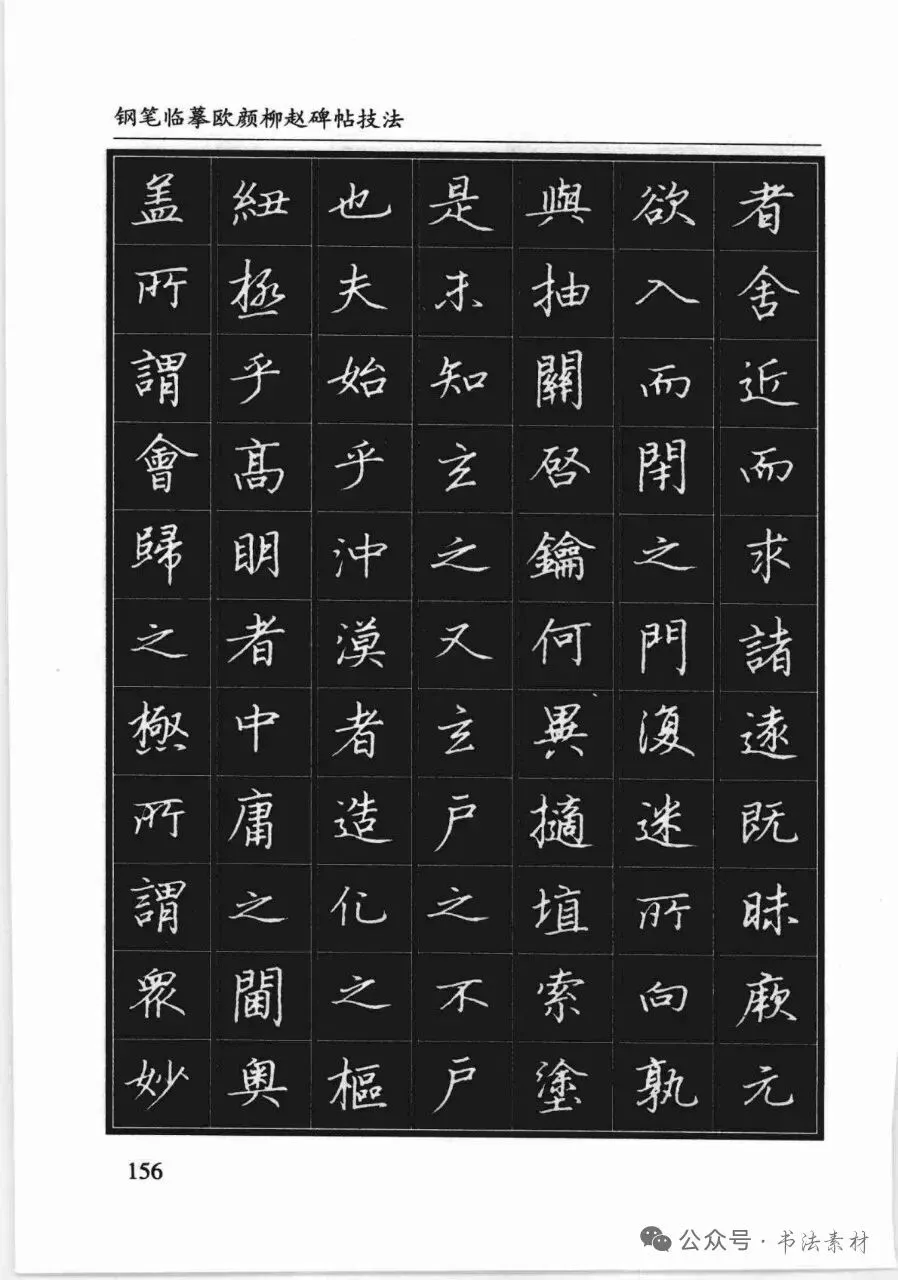 钢笔临摹欧颜柳赵碑帖技法
者舍近而求諸遠既昧厥元
欲入而閇之門復迷所向孰
與抽關啓鑰何異擿埴索塗
是未知玄之又玄戶之不戶
也夫始乎沖漠者造化之樞
紐極乎高明者中庸之閫奥
盖所謂會歸之極所謂衆妙
156
公众号·书法素材